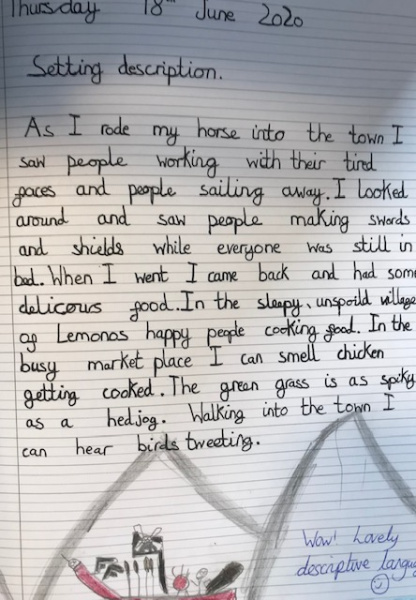 Thursday 18th June 2020
Setting description.
As I rode my horse into the town I
saw people working with their tird
faces and people sailing away. I looked
around and saw people making swords
and shields while everyone was still in
bed. When I went I came back and had some
delicous food. In the sleepy, unspoild village
of Lemonos happy people cooking food. In the
busy market place I can smell chicken
getting cooked. The green grass is as spiky
as a hedjog. Walking into the town I
can hear birds tweeting.
Wow! Lovely
descriptive langu